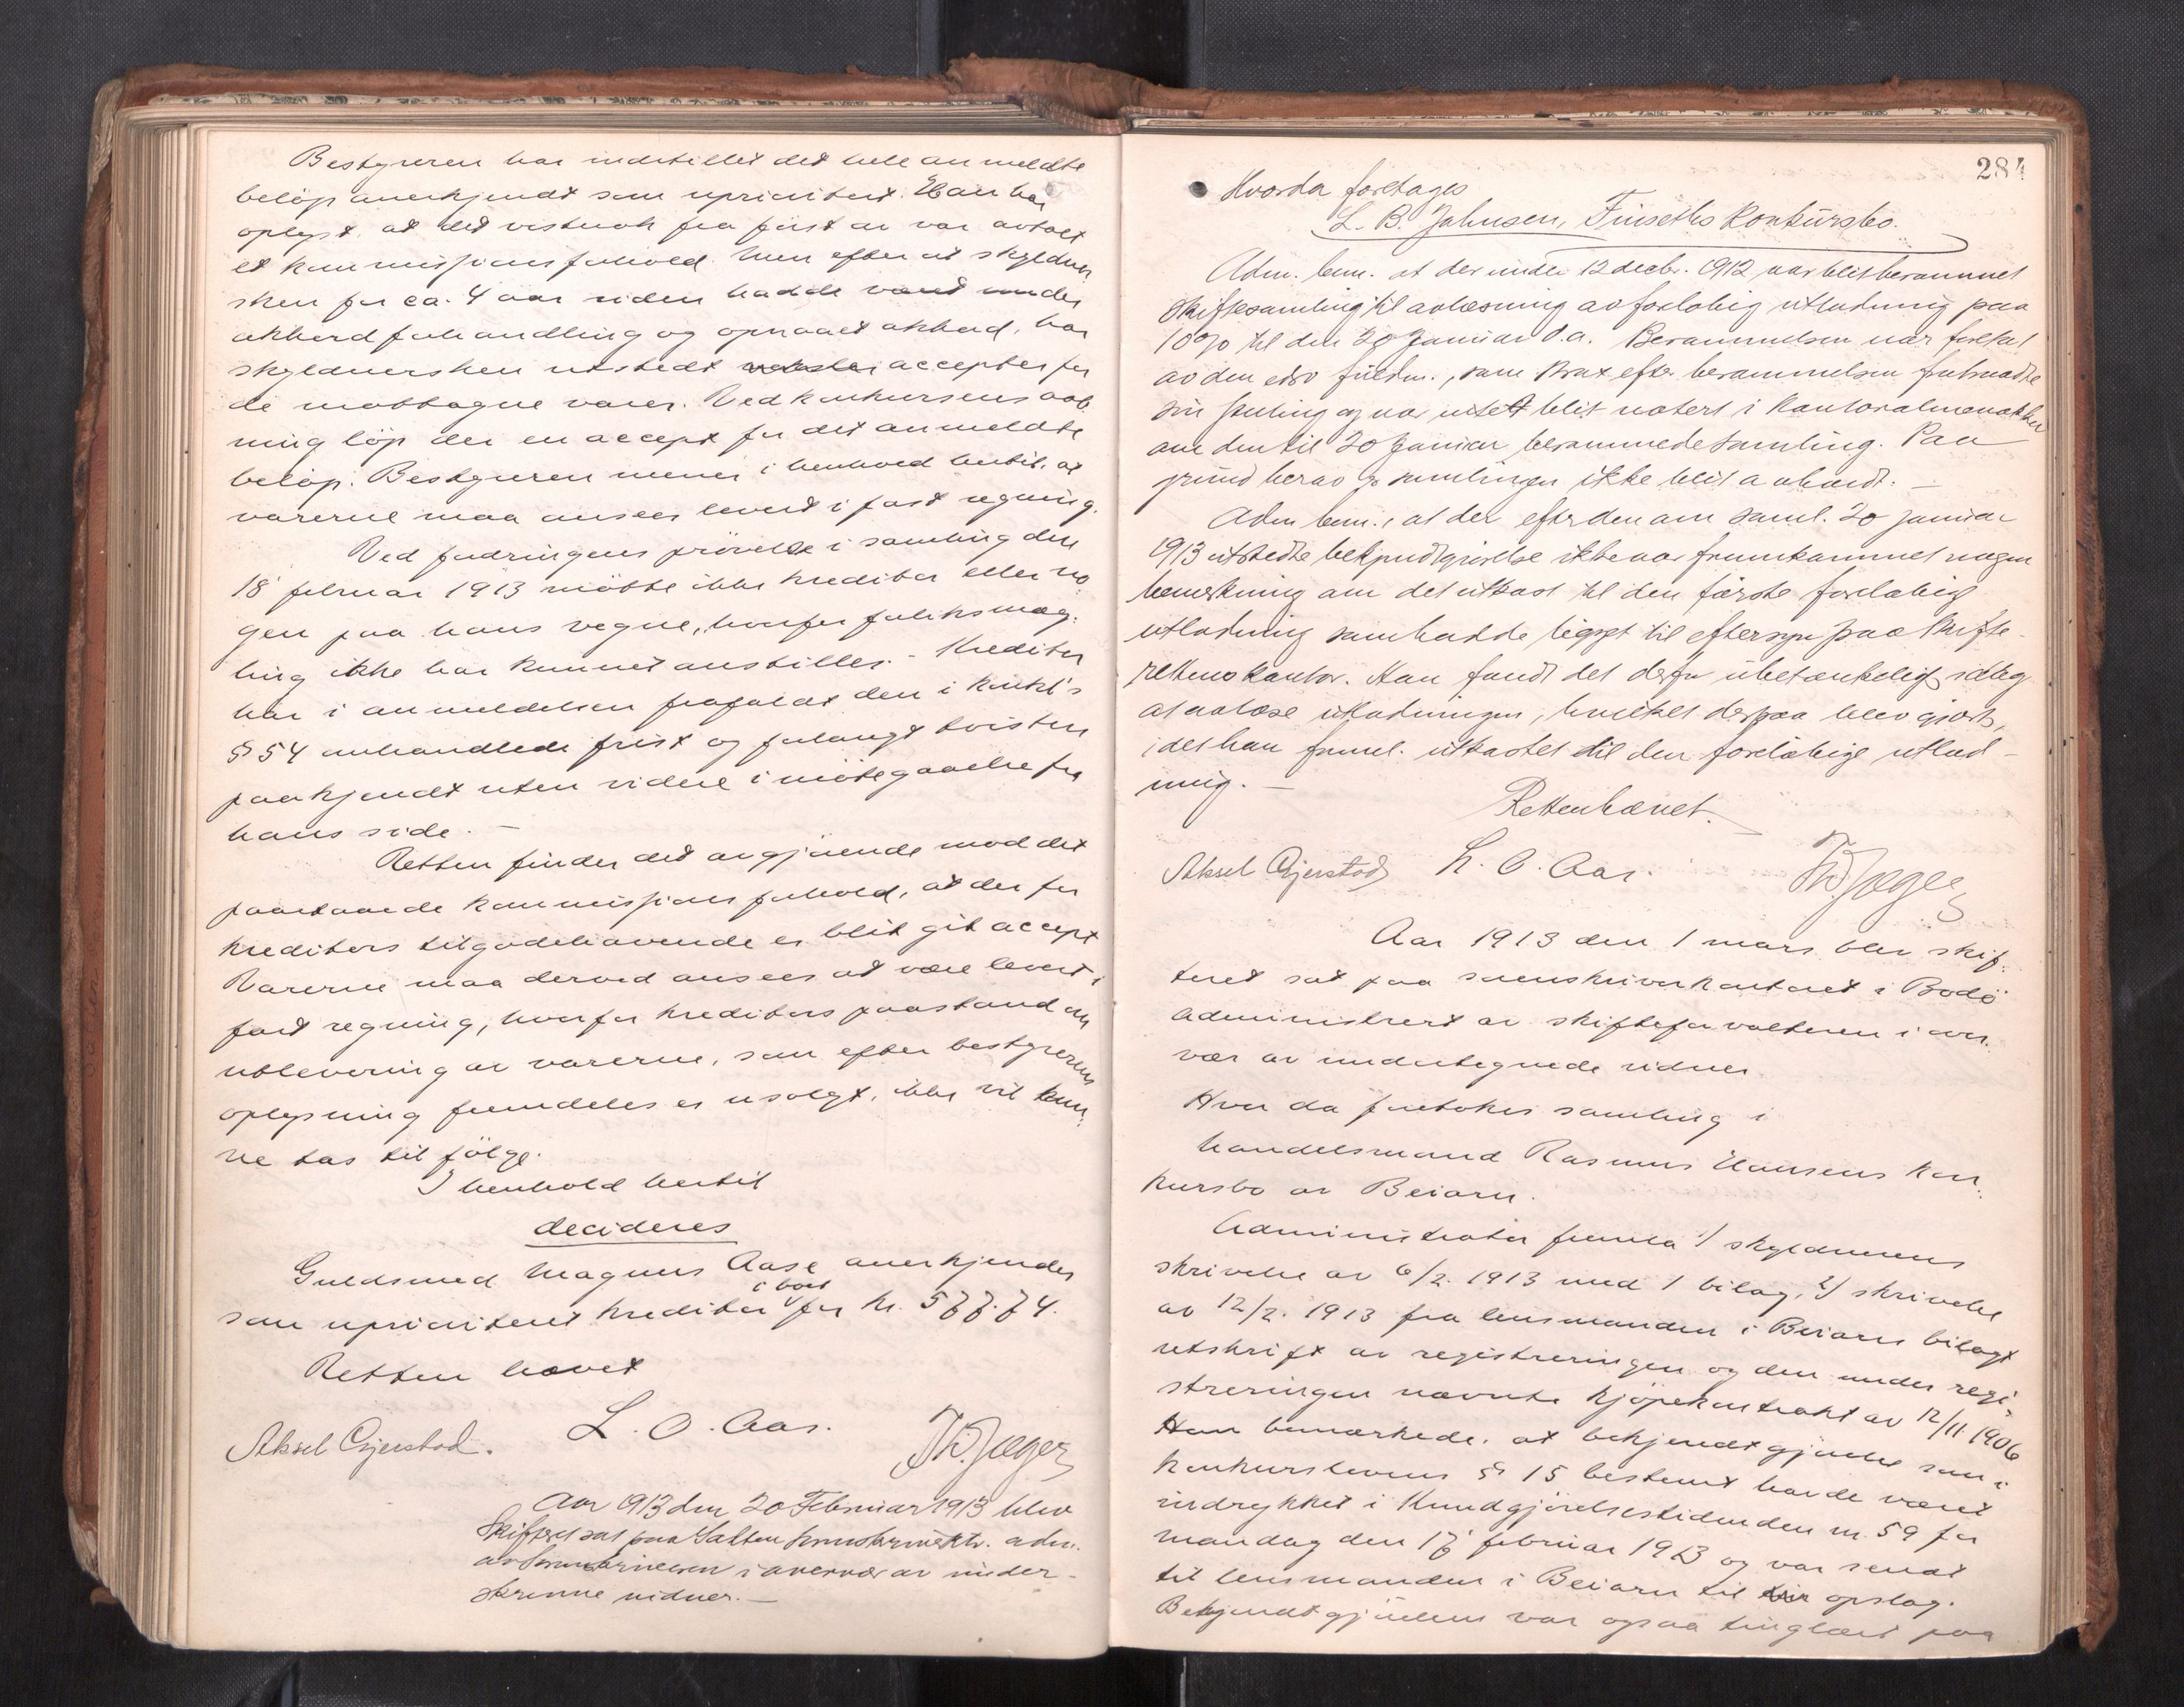 Bestyreren har indstillet det hele anmeldte
beløp anerkjendt som uprioritert. Han har
oplyst, at det vistnok fra først av var avtalt
et kommissjonsforhold men efter at skyldner
sken for ca. 4 aar siden hadde været under
akkordforhandling og opnaaet akkord, har
skyldnersken utstedt accepter for
de mottagne varer. Ved konkursens aab
ning løp der en accept for det anmeldte
beløp. Bestyreren mener i henhold hertil, at
varerne maa ansees levert i fast regning.
Ved fordringens prøvelse i samling den
18 februar 1913 møtte ikke kreditor eller no
gen paa hans vegne, hvorfor forliksmæg:
ling ikke har kunnet anstilles. - Kreditor
har i anmeldelsen frafaldt den i konkl's
§ 54 omhandlede frist og forlangt tvisten
paakjendt uten videre imøtegaaelse fra
hans side. -
Retten finder det avgjørende mod det
paastaaede kommissjonsforhold, at der for
kreditors tilgodehavende er blit git accept
Varerne maa derved ansees at være levert i
fast regning, hvorfor kreditors paastand om
utlevering av varerne, som efter bestyrerens
oplysning fremdeles er usolgt, ikke vil kun:
ne tas til følge.
I henhold hertil
decideres
Guldsmed Magnus Aase anerkjendes
som uprioritert kreditor i boet for kr. 577.74.
Retten hævet
Aksel Gjerstad. L. O. Aas. Th. Jæger
Aar 1913 den 20 Februar 1913 blev
Skifteret sat paa Salten sorenskriverktr. adm.
av Sorenskriveren i overvær av under-
skrevne vidner. -
284
Hvorda foretages
L. B. Johnsen, Finseths Konkursbo.
Adm. bem. at der under 12 decbr. 1912 var blit berammet
Skiftesamling til avlæsning av foreløbig utlodning paa
10% til den 20 Januar d.a. Berammelsen var foretat
av den edsv fuldm., som strax efter berammelsen fratraadte
sin stilling og var intet blit notert i Kontoralmenakken
om den til 20 Januar berammede samling. Paa
grund herav er samlingen ikke blit avholdt. -
Adm bem., at der efter den om saml. 20 januar
1913 utstedte bekjendtgjørelse ikke var fremkommet nogen
bemerkning om det utkast til den første foreløbig
utlodning som hadde ligget til eftersyn paa Skifte-
rettens kontor. Han fandt det derfor ubetænkelig idag
at avlæse utlodningen, hvilket derpaa blev gjort,
idet han freml. utkastet til den foreløbige utlod-
ning. -
Retten hævet.
Aksel Gjerstad L. O. Aas. Th. Jæger
Aar 1913 den 1 mars blev skif:
teret sat paa sorenskriverkontoret i Bodø
administrert av skifteforvalteren i over:
vær av undertegnede vidner
Hvor da foretokes samling i
handelsmand Rasmus Hansens kon:
kursbo av Beiarn.
Administrator fremla 1/ skyldnerens
skrivelse av 6/2. 1913 med 1 bilag, 2/ skrivelse
av 12/2. 1913 fra lensmanden i Beiarn bilagt
utskrift av registreringen og den under regi:
streringen nævnte kjøpekontrakt av 12/11 1906
Han bemærkede, at bekjendtgjørelse som i
konkurslovens § 15 bestemt havde været
indrykket i Kundgjørelsestidenden nr. 59 for
mandag den 17 februar 1913 og var sendt
til lensmanden i Beiarn til opslag.
Bekjendtgjørelsen var ogsaa tinglæst paa